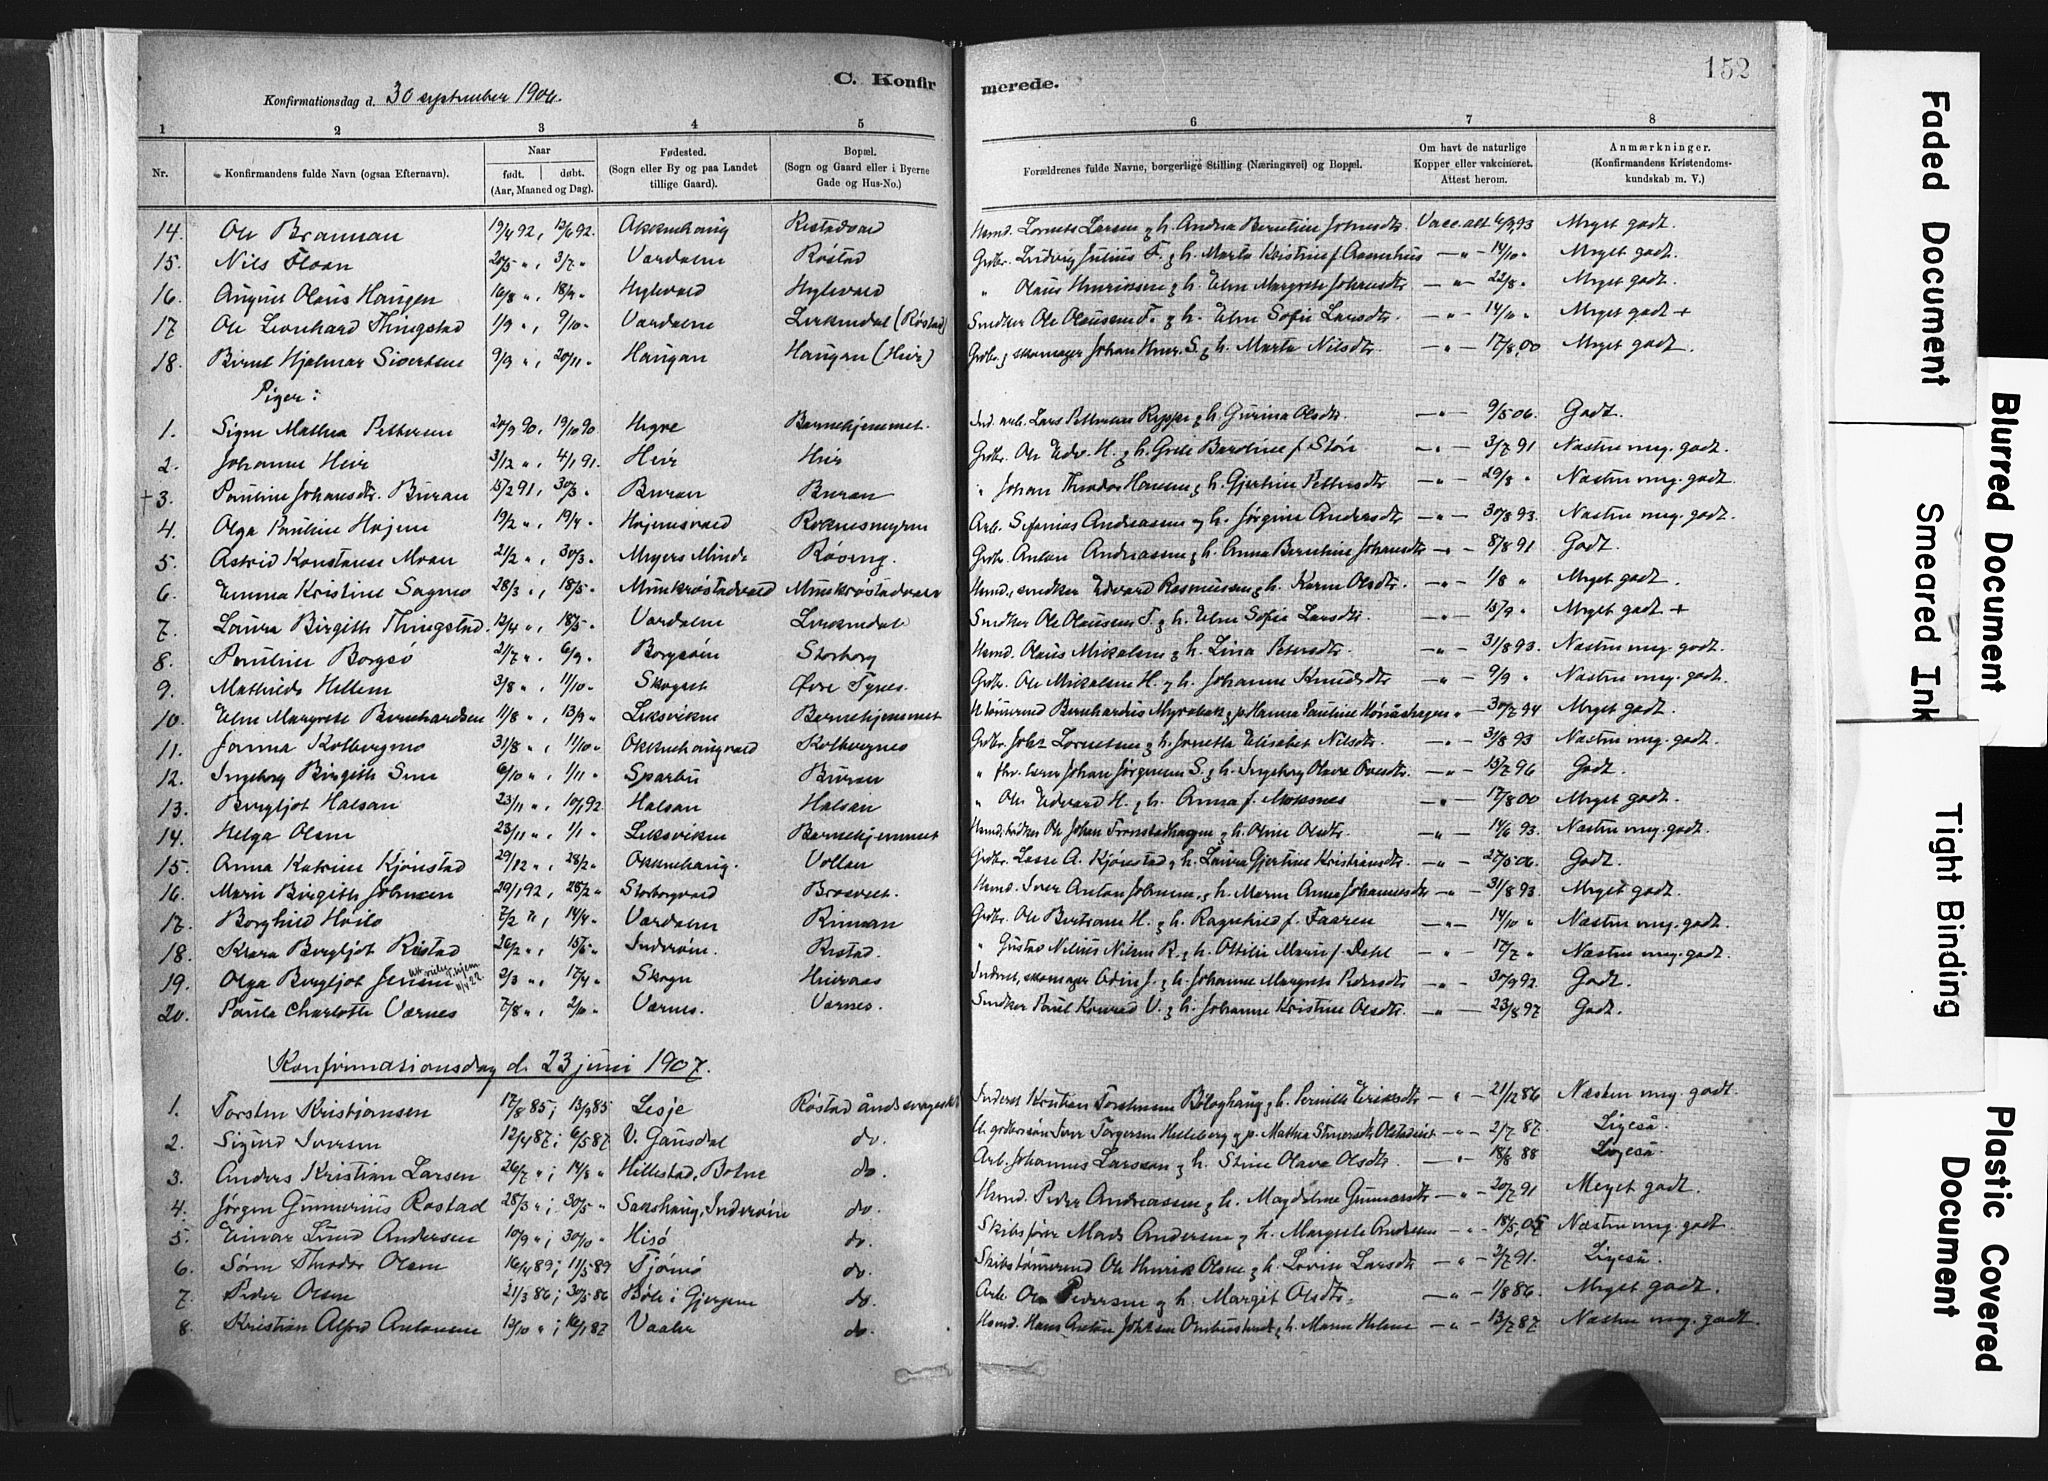 C. Konfirmerede.
152
Konfirmationsdag d. 30 september 1906.
1 2 3 4 5 6 7 8
Nr. Konfirmandens fulde Navn (ogsaa Efternavn). Naar født. døbt. (Aar, Maaned og Dag). Fødested. (Sogn eller By og paa Landet tillige Gaard). Bopæl. (Sogn og Gaard eller i Byerne Gade og Hus-No.) Forældrenes fulde Navne, borgerlige Stilling (Næringsvei) og Bopæl. Om havt de naturlige Kopper eller vakcineret. Attest herom. Anmærkninger. (Konfirmandens Kristendomskundskab m. V.)
14. Ole Brannan 19/4 92, 12/6 92. Okkenhaug Ristadvald Husmd. Lornts Larsen & h. Andrea Berntine Johnsdtr. Vacc. att 6/9 93 Meget godt
15. Nils Floan 20/5 ", 3/7 " Værdalen Røstad Grdbr. Ludvig Julius F. & h. Marta Kristine f. Aasenhus —"— 14/10 " Meget godt.
16. August Olaus Haugen 16/8 ", 18/9 " Hylvald Hylvald " Olaus Henriksen & h. Elen Margrete Johansdtr —"— 22/8 " Meget godt.
17. Ole Leonhard Thingstad 1/9 ", 9/10 " Værdalen Lerkendal (Røstad) Snedker Ole Olaussen T. & h. Elen Sofie Larsdtr. —"— 14/11 " Meget godt +
18. Bernt Hjalmar Sivertsen 9/9 ", 20/11 " Haugan Haugan (Heir) Grdbr. & skomager Johan Henr. S. & h. Marta Nilsdtr. —"— 17/8 00 Meget godt.
Piger:
1. Signe Mathea Pettersen 20/9 90, 19/10 90 Hegre Barnehjemmet. Ind. arb. Lars Petersen Reppe & h. Gurina Olsdtr. —"— 9/5 06. Godt.
2. Johanne Heir 3/12 ", 4/1 91. Heir Heir Grdbr. Ole Edv. H. & h. Grete Bardine f. Støre —"— 3/7 91 Næsten meg. godt.
+3. Pauline Johansdtr. Buran 15/2 91, 30/3 " Buran Buran " Johan Theodor Hansen & h. Gjertine Pettersdtr —"— 29/8 " Næsten meg. godt.
4. Olga Pauline Hojem 19/2 ", 19/4 " Hojemsvald Roknesmyren Arb. Sefanias Andreassen & h. Jørgine Andersdtr —"— 30/8 93. Næsten meg. godt.
5. Astrid Konstanse Moan 21/2 ", 30/3 " Meyers Minde Røvong. Grdbr. Anton Andreassen & h. Anna Berntine Johansdtr —"— 8/8 91 Godt.
6. Emma Kristine Sagmo 28/3 ", 18/5 " Munkrøstadvald Munkrøstadvald Husmd., snedker Edvard Rasmussen & h. Karen Olsdtr. —"— 1/8 " Meget godt.
7. Laura Birgitte Thingstad. 12/4 ", 18/5 " Værdalen Lerkendal Snedker Ole Olaussen T. & h. Elen Sofie Larsdtr. —"— 15/9 " Meget godt +
8. Pauline Borgsø 21/7 ", 6/9 " Borgsøen Storborg Husmd. Olaus Mikalsen & h. Lina Petersdtr. —"— 31/8 93. Næsten meg. godt.
9. Mathilde Hellem 3/8 ", 11/10 " Skogset Øvre Tynes. Grdbr. Ole Mikalsen H. & h. Johanne Knudsdtr —"— 9/9 " Næsten meg. godt.
10. Elen Margrete Bernhardsen 11/8 ", 13/9 " Leksviken Barnehjemmet Bernhardus Myrabak & p. Hanna Pauline 30/7 94 Meget godt.
11. Janna Kolbergmo 31/8 ", 11/10 " Okkenhaugvald Kolbergmo Grdbr. Johs Lorntsen & h. Jonetta Elisabet Nilsdtr. —"— 31/8 93 Næsten meg. godt.
12. Ingeborg Birgitte Sem 6/10 ", 1/11 " Sparbu Buran " Johan Jørgensen S. & h. Ingeborg Olava Ovedtr. —"— 15/7 96 Godt.
13. Bergljot Halsan 23/11 ", 10/1 92. Halsan Halsan " Ole Edvard H. & h. Anna f. Moksnes —"— 17/8 00 Meget godt.
14. Helga Olsen 23/11 ", 1/1 " Leksviken Barnehjemmet Ole Johan Tronstadhagen & h. Oline Olsdtr. —"— 14/6 93. Næsten meg. godt.
15. Anna Katrine Kjønstad 29/12 ", 28/2 " Okkenhaug. Vollan Grdbr. Lasse A. Kjønstad & h. Laura Gjertine Kristiansdtr —"— 27/5 06. Godt.
16. Marie Birgitte Johnsen 29/1 92, 28/2 " Storborgvald Brasvet. Husmd. Iver Anton Johnsen & h. Maren Anna Johannesdtr —"— 31/8 93. Meget godt.
17. Borghild Høilo 7/2 ", 14/4 " Værdalen Rinnan Grdbr. Ole Bertram H. & h. Ragnhild f. Faaren —"— 14/10 " Næsten meg. godt.
18. Klara Bergljot Ristad 26/2 ", 15/5 " Inderøen. Ristad. " Gustav Nelius Nilsen R. & h. Ottilie Marie f. Dahl —"— 17/7 " Næsten meg. godt.
19. Olga Bergljot Jensen 2/3 ", 17/4 " Skogn Heiraas Inderst, skomager Odin J. & h. Johanne Margrete Pedersdtr —"— 30/9 92. Godt.
20. Paula Charlotte Værnes 7/8 ", 2/10 " Værnes. Værnes. Snedker Paul Konrad V. & h. Johanne Kristine Olsdtr. —"— 23/8 97 Godt.
Konfirmationsdag d. 23 juni 1907.
1. Torsten Kristiansen 17/8 85; 13/9 85 Lesje Røstad åndssvageskole Inderst Kristian Torstensen Bøloghaug & h. Pernille Eriksdtr —"— 21/12 86 Næsten meg. godt.
2. Sigurd Iversen 12/4 87; 6/5 87 V. Gausdal do. Iver Torgersen Helleberg & p. Mathea —"— 2/7 87. Ligeså
3. Anders Kristian Larsen 26/7 "; 14/8 " Hillestad, Botne do Arb. Johannes Larssen & h. Stine Olava Olsdtr. —"— 18/8 88 Ligeså.
4. Jørgen Gunnerius Rostad 28/3 "; 30/5 " Sakshaug, Inderøen do. Husmd. Peder Andreassen & h. Magdalene Gunnarsdtr —"— 20/7 91 Meget godt.
5. Einar Lund Andersen 10/9 "; 30/10 " Hisø do. Skibsfører Mads Andersen & h. Margrete Andersen —"— 18/5 05 Næsten meg. godt
6. Søren Theodor Olsen 16/4 89; 11/5 89 Tjømø do. Skibstømmermd Ole Henrik Olsen & h. Lovise Larsdtr —"— 2/7 91. Ligeså.
7. Peder Olsen 21/3 86; 30/5 86 Bøle i Gjerpen do. Arb. Ole Pedersen & h. Margit Olsdtr. —"— 1/8 86. Meget godt.
8. Kristian Alfred Antonsen 13/10 "; 16/1 87 Vaaler do. Husmd. Hans Anton & h. Maren Helene —"— 13/7 87 Næsten meg. godt.
Faded Document
Blurred Document
Smeared Ink
Tight Binding
Plastic Covered Document